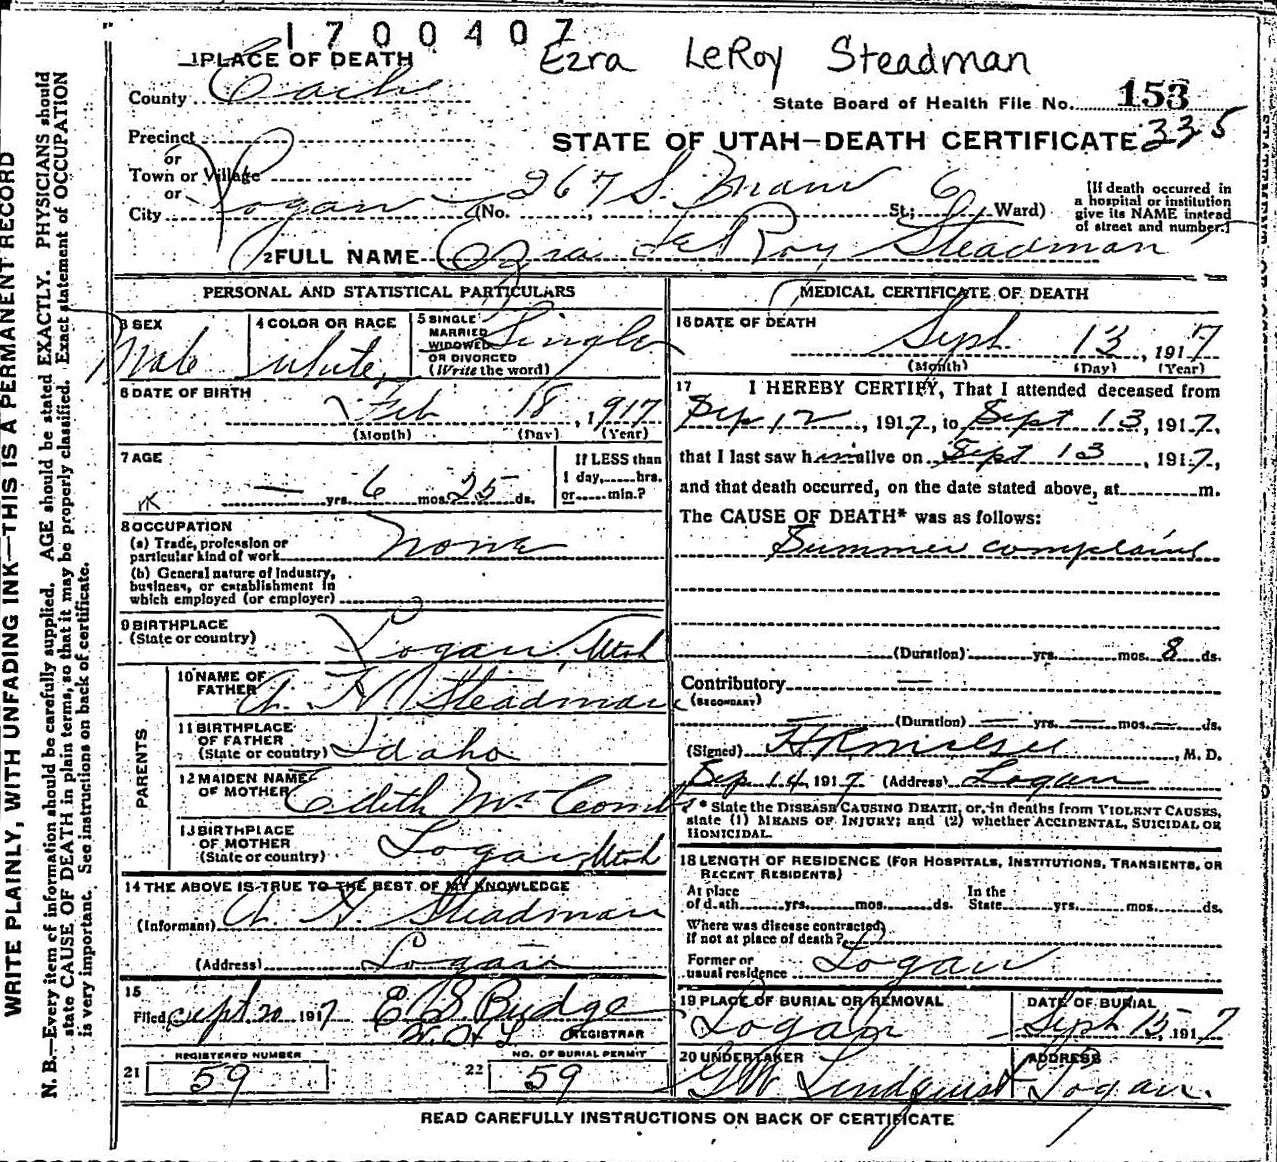 1700407
Ezra LeRoy Steadman
1 PLACE OF DEATH
County Cache
State Board of Health File No. 153
Precinct
or
STATE OF UTAH—DEATH CERTIFICATE 335
Town or Village
or
City Logan (No. 267 S. Main St; 6 Ward)
[If death occurred in
a hospital or institution
give its NAME instead
of street and number.]
2 FULL NAME Ezra LeRoy Steadman
PERSONAL AND STATISTICAL PARTICULARS
3 SEX
Male
4 COLOR OR RACE
White
5 SINGLE
MARRIED
WIDOWED
OR DIVORCED
(Write the word)
Single
6 DATE OF BIRTH
Feb 18, 1917
(Month) (Day) (Year)
7 AGE
— yrs. 6 mos. 25 ds.
If LESS than
1 day, hrs.
or min.?
8 OCCUPATION
(a) Trade, profession or
particular kind of work None
(b) General nature of industry,
business, or establishment in
which employed (or employer)
9 BIRTHPLACE
(State or country) Logan, Utah
PARENTS
10 NAME OF
FATHER A. H. Steadman
11 BIRTHPLACE
OF FATHER
(State or country) Idaho
12 MAIDEN NAME
OF MOTHER Edith
13 BIRTHPLACE
OF MOTHER
(State or country) Logan, Utah
14 THE ABOVE IS TRUE TO THE BEST OF MY KNOWLEDGE
(Informant) A. H. Steadman
(Address) Logan
15
Filed Sept 20 1917 E S Budge
REGISTRAR
REGISTERED NUMBER
21 59
NO. OF BURIAL PERMIT
22 59
MEDICAL CERTIFICATE OF DEATH
16 DATE OF DEATH
Sept. 13, 1917
(Month) (Day) (Year)
17 I HEREBY CERTIFY, That I attended deceased from
Sep 12, 1917, to Sept 13, 1917,
that I last saw him alive on Sept 13, 1917,
and that death occurred, on the date stated above, at m.
The CAUSE OF DEATH* was as follows:
Summer complaint
(Duration) yrs. mos. 8 ds.
Contributory —
(SECONDARY)
— (Duration) — yrs. — mos. — ds.
(Signed) , M. D.
Sep 14 1917 (Address) Logan
* State the DISEASE CAUSING DEATH, or, in deaths from VIOLENT CAUSES,
state (1) MEANS OF INJURY; and (2) whether ACCIDENTAL, SUICIDAL OR
HOMICIDAL.
18 LENGTH OF RESIDENCE (FOR HOSPITALS, INSTITUTIONS, TRANSIENTS, OR
RECENT RESIDENTS)
At place
of death yrs. mos. ds.
In the
State yrs. mos. ds.
Where was disease contracted
if not at place of death?
Former or
usual residence Logan
19 PLACE OF BURIAL OR REMOVAL
Logan
DATE OF BURIAL
Sept 15, 1917
20 UNDERTAKER
GW Lindquist
ADDRESS
Logan.
READ CAREFULLY INSTRUCTIONS ON BACK OF CERTIFICATE
WRITE PLAINLY, WITH UNFADING INK—THIS IS A PERMANENT RECORD
N. B.—Every item of information should be carefully supplied. AGE should be stated EXACTLY. PHYSICIANS should
state CAUSE OF DEATH in plain terms, so that it may be properly classified. Exact statement of OCCUPATION
is very important. See instructions on back of certificate.